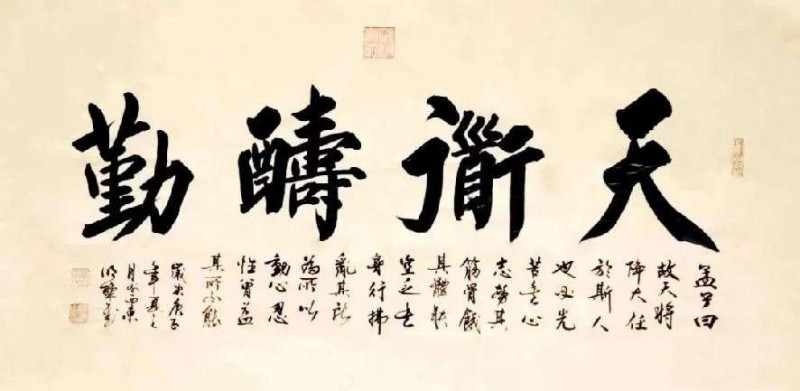 天衜醻勤
孟子曰
故天將
降大任
於斯人
也必先
苦其心
志勞其
筋骨餓
其體膚
空乏其
身行拂
亂其所
為所以
動心忍
性曾益
其所不能
歲次庚子
年夏之
月於山東